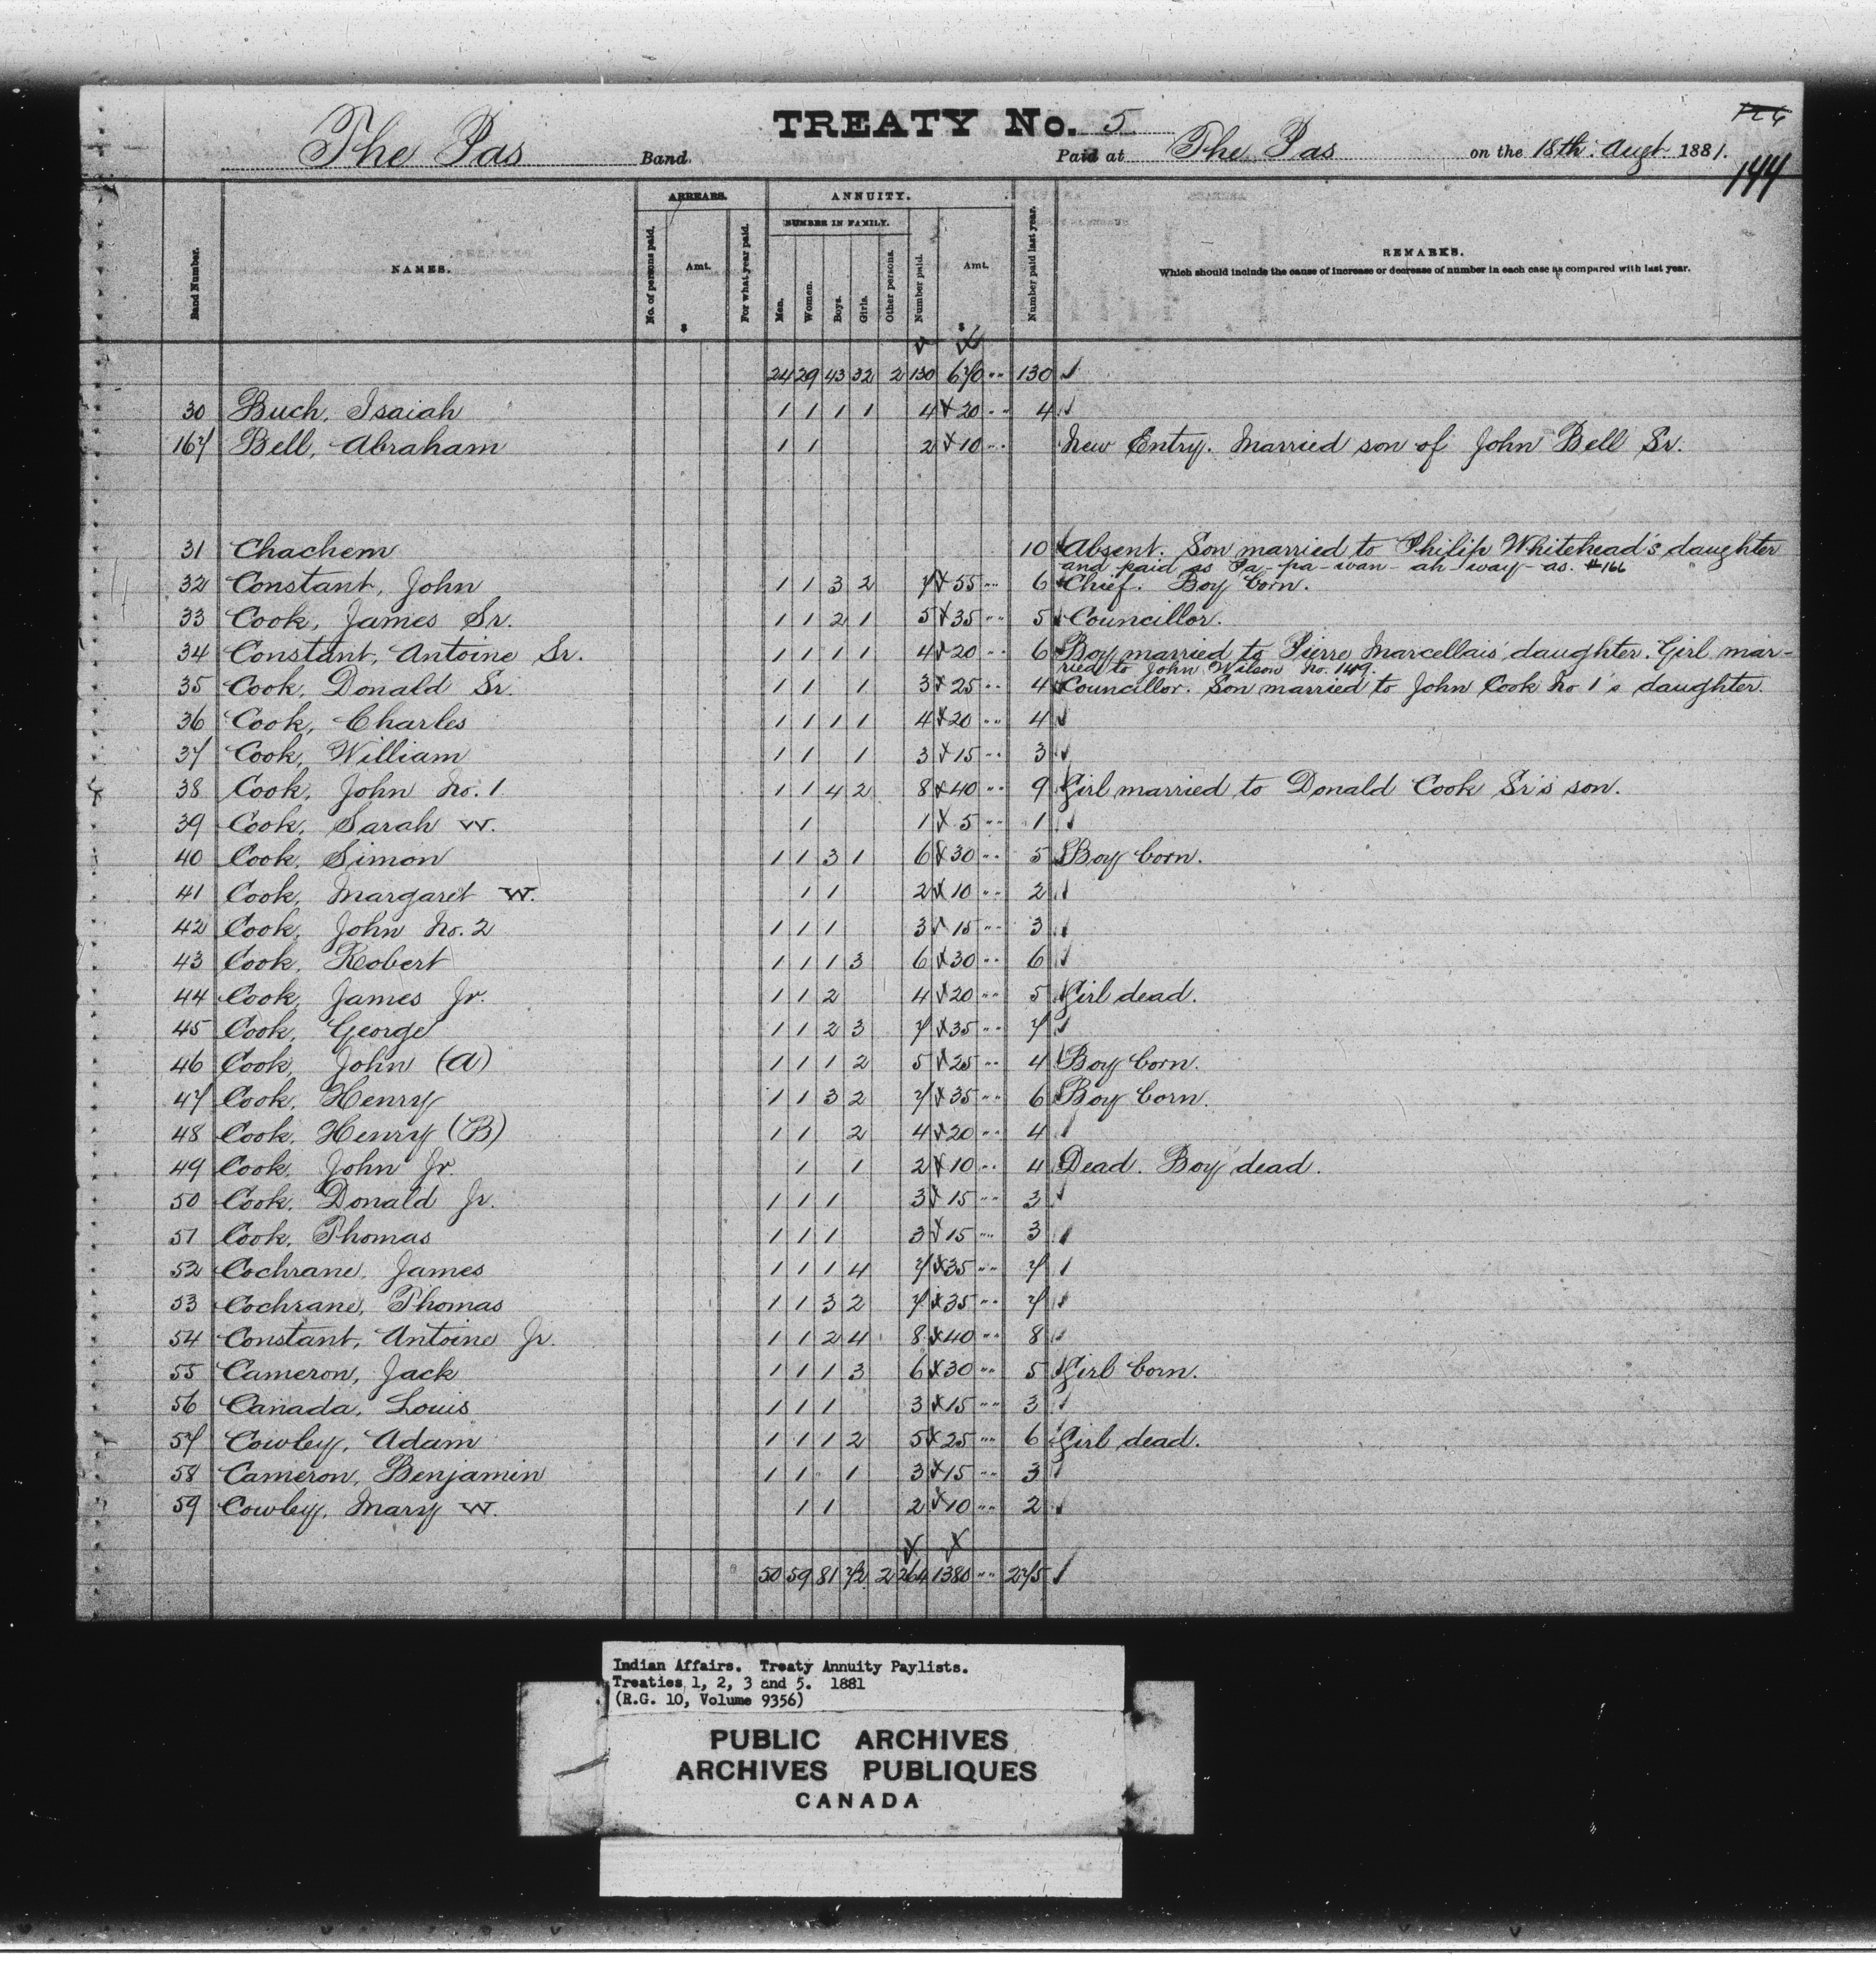 TREATY No. 5
144
The Pas Band. Paid at The Pas on the 18th. Augt. 1881.
Band Number. NAMES. ARREARS. No. of persons paid. Amt. $ For what year paid. ANNUITY. NUMBER IN FAMILY. Men. Women. Boys. Girls. Other persons. Number paid. Amt. $ Number paid last year. REMARKS.
Which should include the cause of increase or decrease of number in each case as compared with last year.
24 29 43 32 2 130 670 130
30 Buch, Isaiah 1 1 1 1 4 20 4
167 Bell, Abraham 1 1 2 10 New Entry. Married son of John Bell Sr.
31 Chachem 10 Absent. Son married to Philip Whitehead's daughter
and paid as Pa-pa-wan-ah-way-as. #166
32 Constant, John 1 1 3 2 7 55 6 Chief. Boy born.
33 Cook, James Sr. 1 1 2 1 5 35 5 Councillor.
34 Constant, Antoine Sr. 1 1 1 1 4 20 6 Boy married to Pierre Marcellais daughter. Girl mar-
ried to John Wilson No. 149.
35 Cook, Donald Sr. 1 1 1 3 25 4 Councillor. Son married to John Cook No 1's daughter.
36 Cook, Charles 1 1 1 1 4 20 4
37 Cook, William 1 1 1 3 15 3
38 Cook, John No. 1 1 1 4 2 8 40 9 Girl married to Donald Cook Sr's son.
39 Cook, Sarah W. 1 1 5 1
40 Cook, Simon 1 1 3 1 6 30 5 Boy born.
41 Cook, Margaret W. 1 1 2 10 2
42 Cook, John No. 2 1 1 1 3 15 3
43 Cook, Robert 1 1 1 3 6 30 6
44 Cook, James Jr. 1 1 2 4 20 5 Girl dead.
45 Cook, George 1 1 2 3 7 35 7
46 Cook, John (A) 1 1 1 2 5 25 4 Boy born.
47 Cook, Henry 1 1 3 2 7 35 6 Boy born.
48 Cook, Henry (B) 1 1 2 4 20 4
49 Cook, John Jr. 1 1 2 10 4 Dead. Boy dead.
50 Cook, Donald Jr. 1 1 1 3 15 3
51 Cook, Thomas 1 1 1 3 15 3
52 Cochrane, James 1 1 1 4 7 35 7
53 Cochrane, Thomas 1 1 3 2 7 35 7
54 Constant, Antoine Jr. 1 1 2 4 8 40 8
55 Cameron, Jack 1 1 1 3 6 30 5 Girl born.
56 Canada, Louis 1 1 1 3 15 3
57 Cowley, Adam 1 1 1 2 5 25 6 Girl dead.
58 Cameron, Benjamin 1 1 1 3 15 3
59 Cowley, Mary W. 1 1 2 10 2
50 59 81 72 2 264 1380 275
Indian Affairs. Treaty Annuity Paylists.
Treaties 1, 2, 3 and 5. 1881
(R.G. 10, Volume 9356)
PUBLIC ARCHIVES
ARCHIVES PUBLIQUES
CANADA